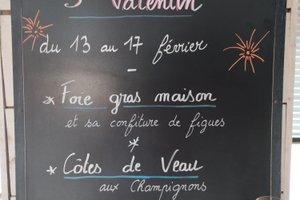 St Valentin
du 13 au 17 février
-
* Foie gras maison
et sa confiture de figues
*
* Côtes de Veau
aux Champignons